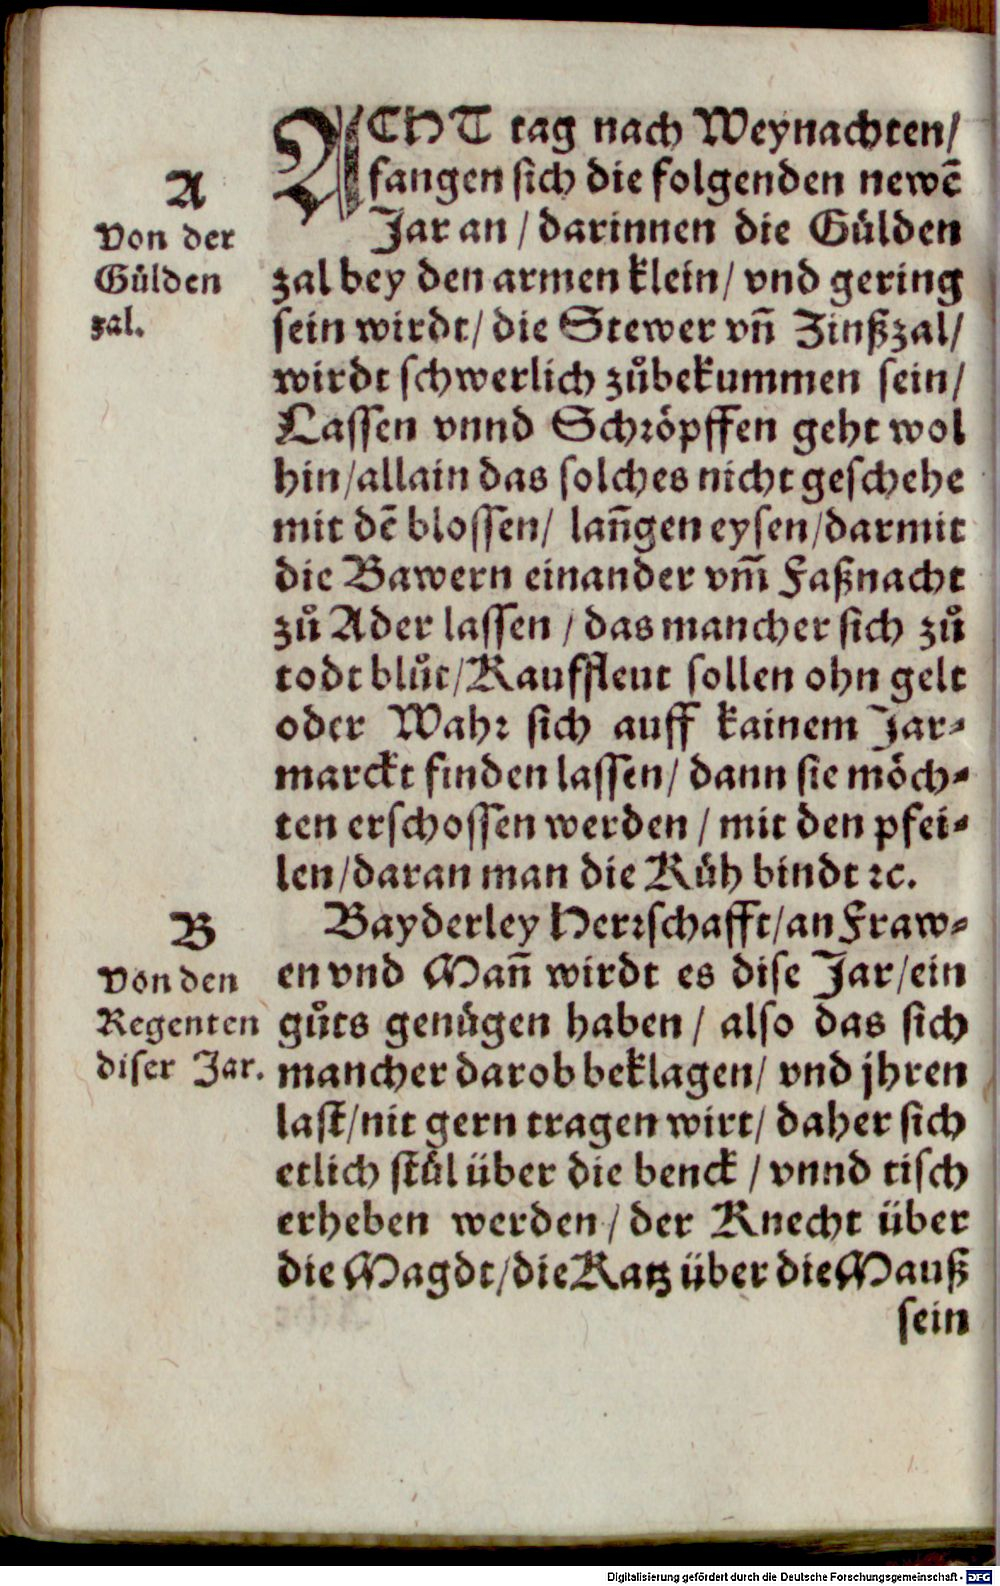 ACHT tag nach Weynachten/
fangen sich die folgenden newē
Jar an / darinnen die Gülden
zal bey den armen klein/ vnd gering
sein wirdt/ die Stewer vñ Zinßzal/
wirdt schwerlich zůbekummen sein/
Lassen vnnd Schröpffen geht wol
hin/allain das solches nicht geschehe
mit dē blossen/ lañgen eysen/darmit
die Bawern einander vm̃ Faßnacht
zů Ader lassen / das mancher sich zů
todt blůt/Kauffleut sollen ohn gelt
oder Wahr sich auff kainem Jar⸗
marckt finden lassen/ dann sie möch⸗
ten erschossen werden / mit den pfei⸗
len/daran man die Küh bindt ꝛc.
A
Von der
Gülden
zal.
Bayderley Herrschafft/an Fraw⸗
en vnd Mañ wirdt es dise Jar/ein
gůts genügen haben / also das sich
mancher darob beklagen/ vnd jhren
last/nit gern tragen wirt/ daher sich
etlich stůl über die benck / vnnd tisch
erheben werden / der Knecht über
die Magdt/die Katz über die Mauß
sein
B
Von den
Regenten
diser Jar.
Digitalisierung gefördert durch die Deutsche Forschungsgemeinschaft - DFG